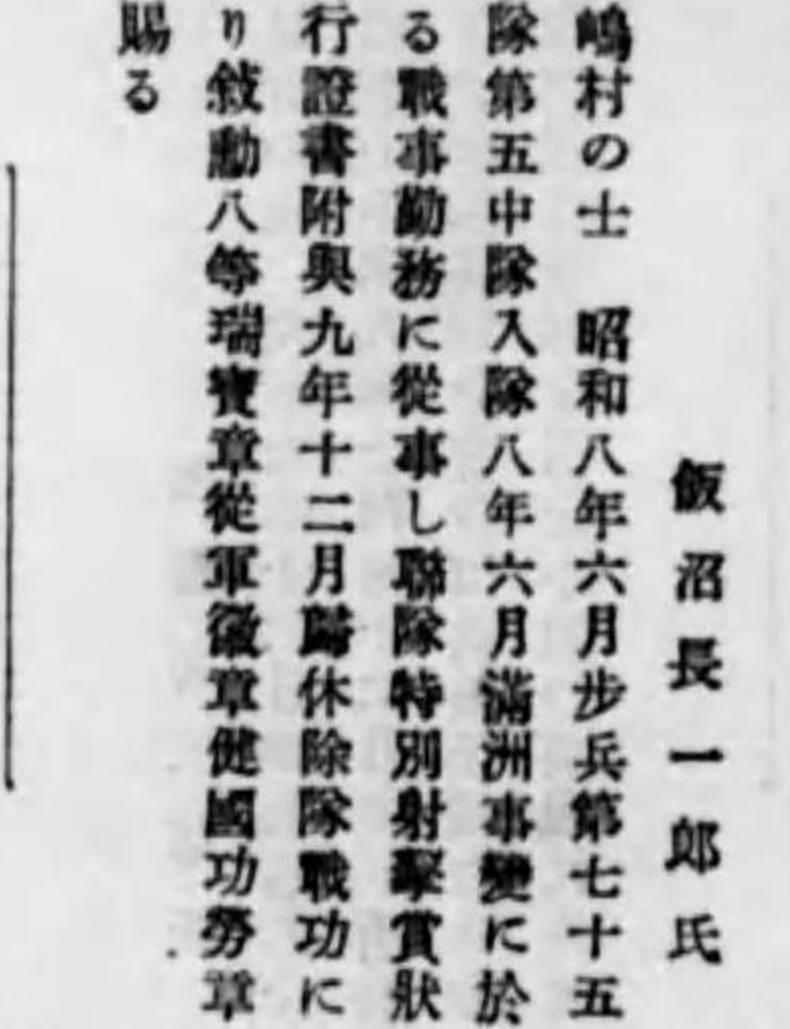 飯沼長一郎氏
嶋村の士　昭和八年六月步兵第七十五
隊第五中隊入隊八年六月滿洲事變に於
る戰事勤務に從事し聯隊特別射擊賞狀
行證書附與九年十二月歸休除隊戰功に
り敍勳八等瑞寶章從軍徽章健國功勞章
賜る